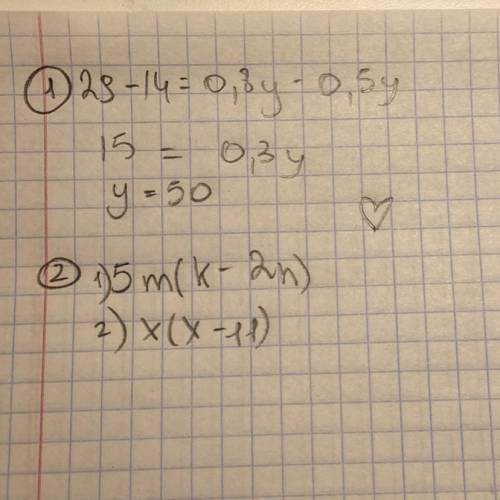 1 29-14=0,8y-0,5y
15 = 0,3y
y=50
2 1) 5m(k-2n)
2) x(x-11)